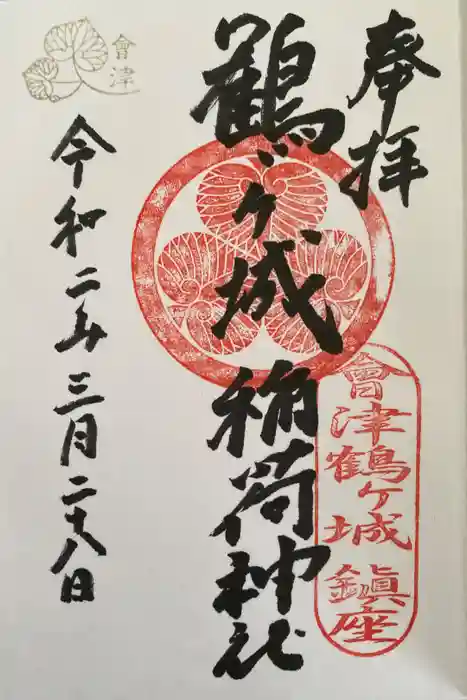 奉拝
鶴ヶ城稲荷神社
會津鶴ヶ城鎮座
會津
令和二年三月二十八日